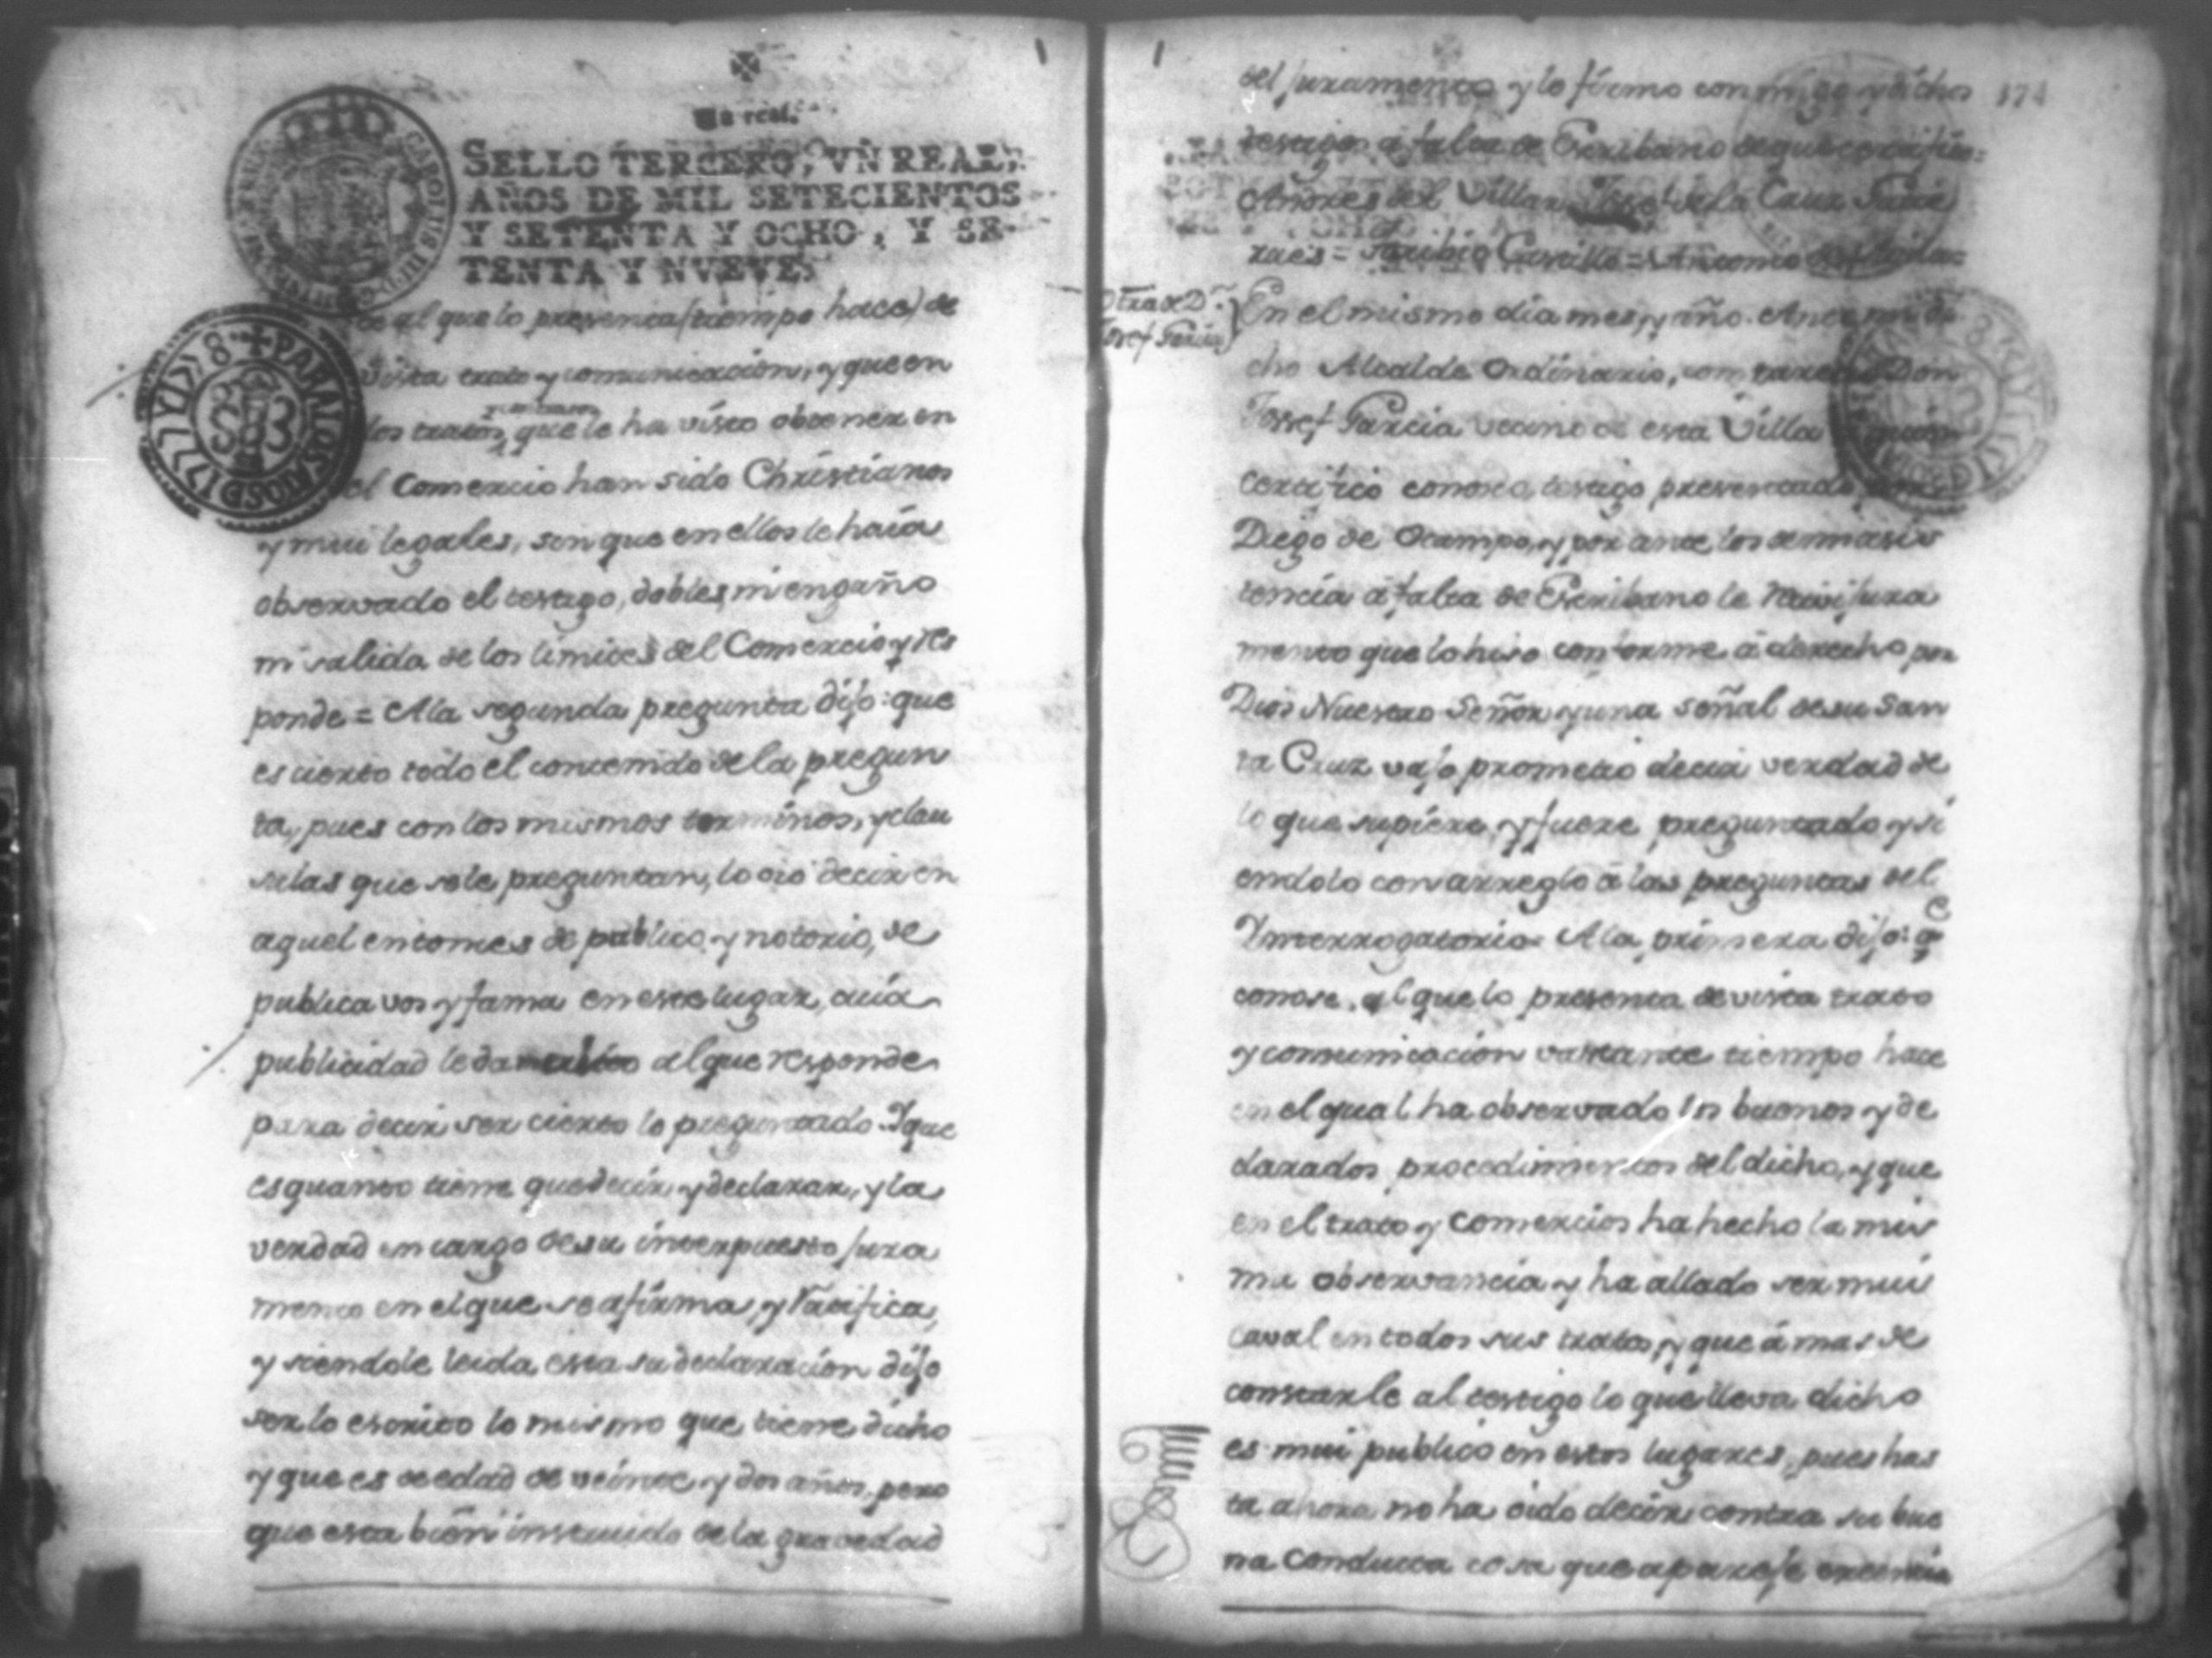 Un real.
SELLO TERCERO, VN REAL,
AÑOS DE MIL SETECIENTOS
Y SETENTA Y OCHO, Y SE-
TENTA Y NVEVE.
ce al que lo presenta (tiempo hace) de
vista trato y comunicacion, y que en
los tratos, que le ha visto obtener en
el Comercio han sido Christianos
y mui legales, sin que en ellos le haia
observado el testigo, dobles, ni engaño
ni salida de los limites del Comercio y res
ponde = A la segunda pregunta dijo: que
es cierto todo el contenido de la pregun
ta, pues con los mismos terminos, y clau
sulas que se le preguntan, lo oio decir en
aquel entonces de publico, y notorio, de
publica vos y fama en este lugar, cuia
publicidad le da al que responde
para decir ser cierto lo preguntado. Y que
es quanto tiene que decir, y declarar, y la
verdad en cargo de su interpuesto jura
mento en el que se afirma, y Ratifica,
y siendole leida esta su declaracion dijo
ser lo escrito lo mismo que tiene dicho
y que es de edad de veinte y dos años, pero
que esta bien instruido de la gravedad
174
del juramento y lo firmo conmigo y dichos
testigos a falta de Escribano de que certifico =
Andres del Villar Josef de la Cruz
= Toribio Carrillo = Antonio de
Otra de Dn.
Josef Garcia
En el mismo dia mes, y año. Ante mi di
cho Alcalde Ordinario, comparecio Don
Josef Garcia vecino de esta Villa
certifico conosco, testigo presentado
Diego de Ocampo, y por ante los de mi asis
tencia a falta de Escribano le Recivi jura
mento que lo hiso conforme á derecho por
Dios Nuestro Señor y una señal de su San
ta Cruz vajo prometio decir verdad de
lo que supiere, y fuere preguntado y si
endolo con arreglo á las preguntas del
Interrogatorio = A la primera dijo: qe
conose al que lo presenta de vista trato
y comunicacion vastante tiempo hace
en el qual ha observado los buenos y de
clarados procedimientos del dicho, y que
en el trato y comercios ha hecho la mis
ma observancia y ha allado ser mui
caval en todos sus tratos, y que á mas de
constarle al testigo lo que lleva dicho
es mui publico en estos lugares, pues has
ta ahora no ha oido decir contra su bue
na conducta cosa que